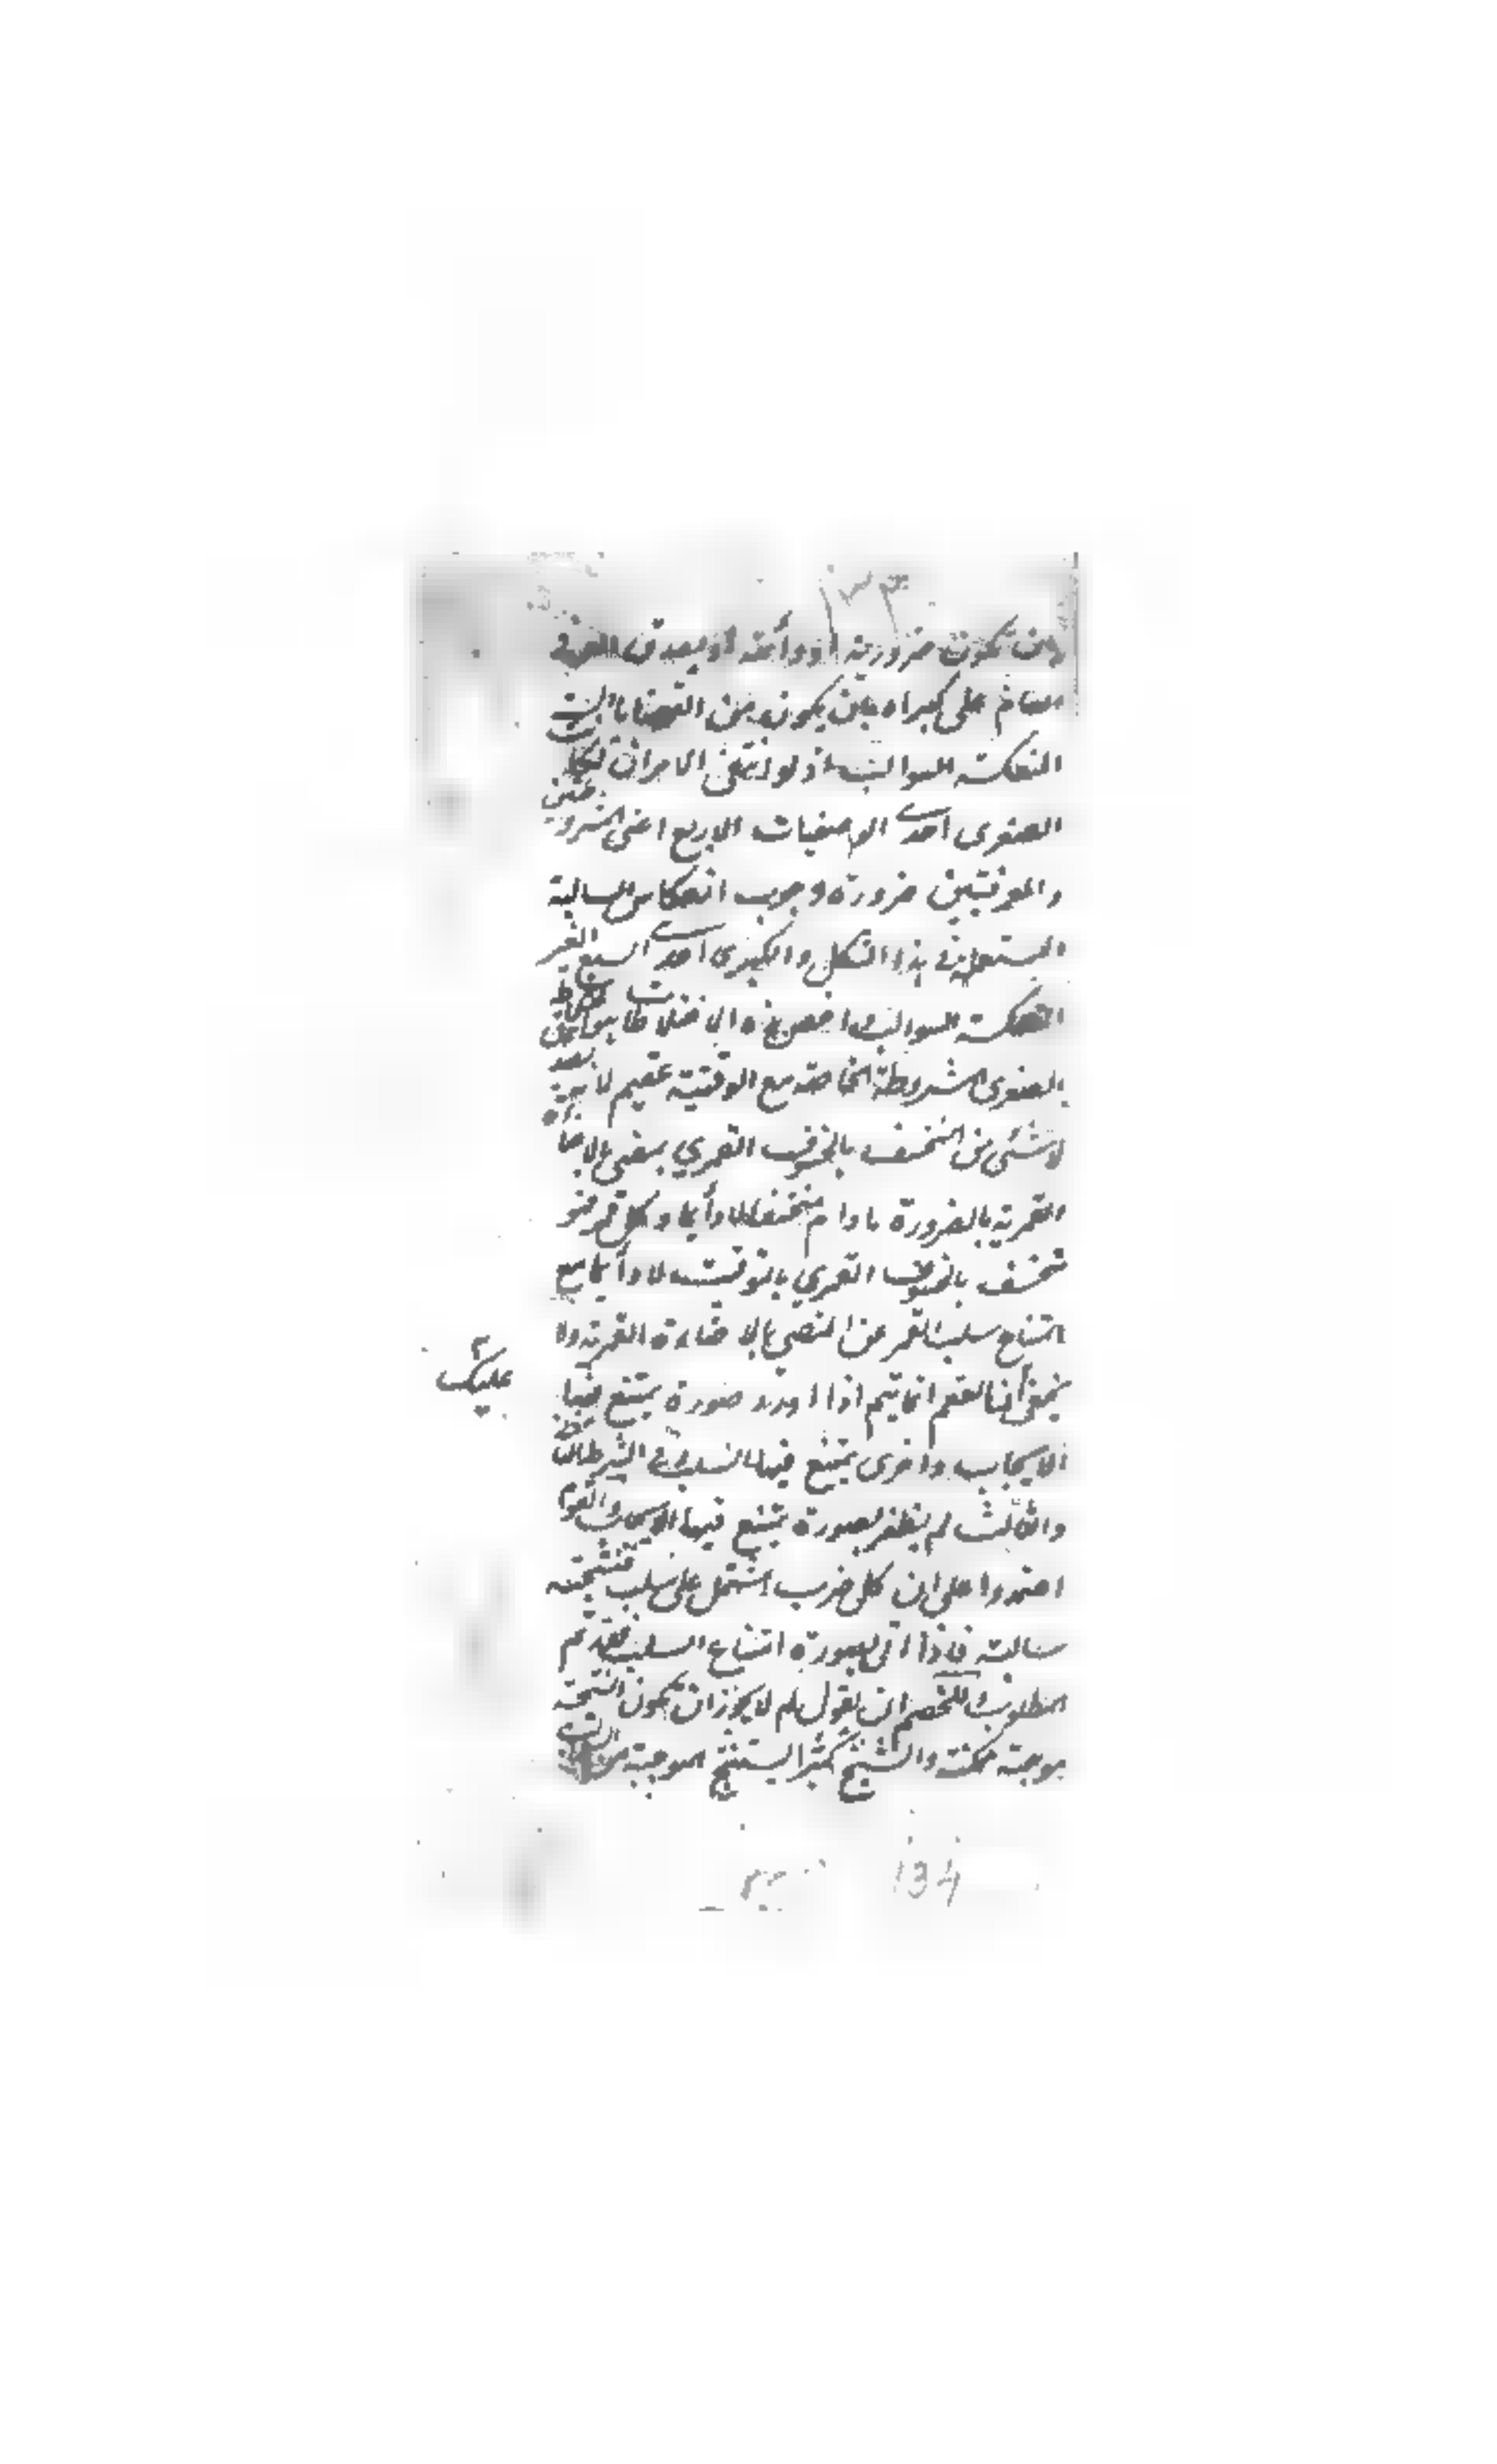 ١٣٣
بان تكون ضرورية او دائمة او يصدق العرفي
العام على كبراه بان يكون من القضايا الست
المنعكسة السوالب اذ لو انتفى الامران لكان
الصغرى احدى الوصفيات الاربع اعنى المشروطتين
والعرفيتين ضرورة وجوب انعكاس السالبة
المستعملة فى هذا الشكل والكبرى احدى السبع الغير
المنعكسة السوالب واخص هذه الاختلاطات هو اختلاط
الصغرى المشروطة الخاصة مع الوقتية عقيم لانه يصدق
لا شئ من المنخسف بالخسوف القمري بمضى بالاضاءة
القمرية بالضرورة ما دام منخسفا لا دائما وكل قمر فهو
منخسف بالخسوف القمري بالتوقيت لا دائما مع
امتناع سلب القمر عن المضى بالاضاءة القمرية ولا
يخفى عليك
أن العقم انما يتم اذا اورد صورة يمتنع فيها
الايجاب واخرى يمتنع فيها السلب وفى الشرط الثانى
والثالث لم يظفر بصورة يمتنع فيها الايجاب والقوم
اعتمدوا على ان كل ضرب اشتمل على سلب فنتيجته
سالبة فاذا اتى بصورة امتناع السلب فقد تم
المطلوب وللخصم ان يقول لم لا يجوز ان تكون النتيجة
موجبة ممكنة والشيخ كثيرا يستنتج الموجبة من
134